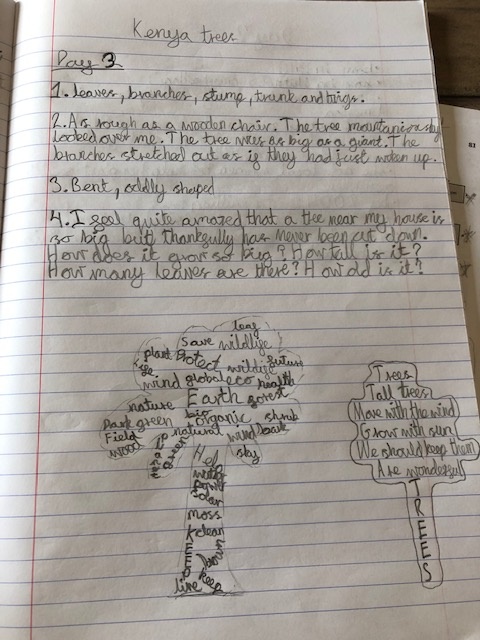 Kenya trees
Day 3
1. leaves, branches, stump, trunk and twigs.
2. As rough as a wooden chair. The tree mountaniously
looked over me. The tree was as big as a giant. The
branches stretched out as if they had just woken up.
3. Bent, oddly shaped
4. I feel quite amazed that a tree near my house is
so big but thankfully has never been cut down.
How does it grow so big? How tall is it?
How many leaves are there? How old is it?
leaf
Save wildlife
plant Protect wildlife future
wind global eco health
Earth forest
nature bio organic shrub
Park green natural wind bark
Field
wood
sky
water
power
solar
moss
clean
keep
live
Trees
Tall trees
Move with the wind
Grow with sun
We should keep them
Are wonderful
TREES